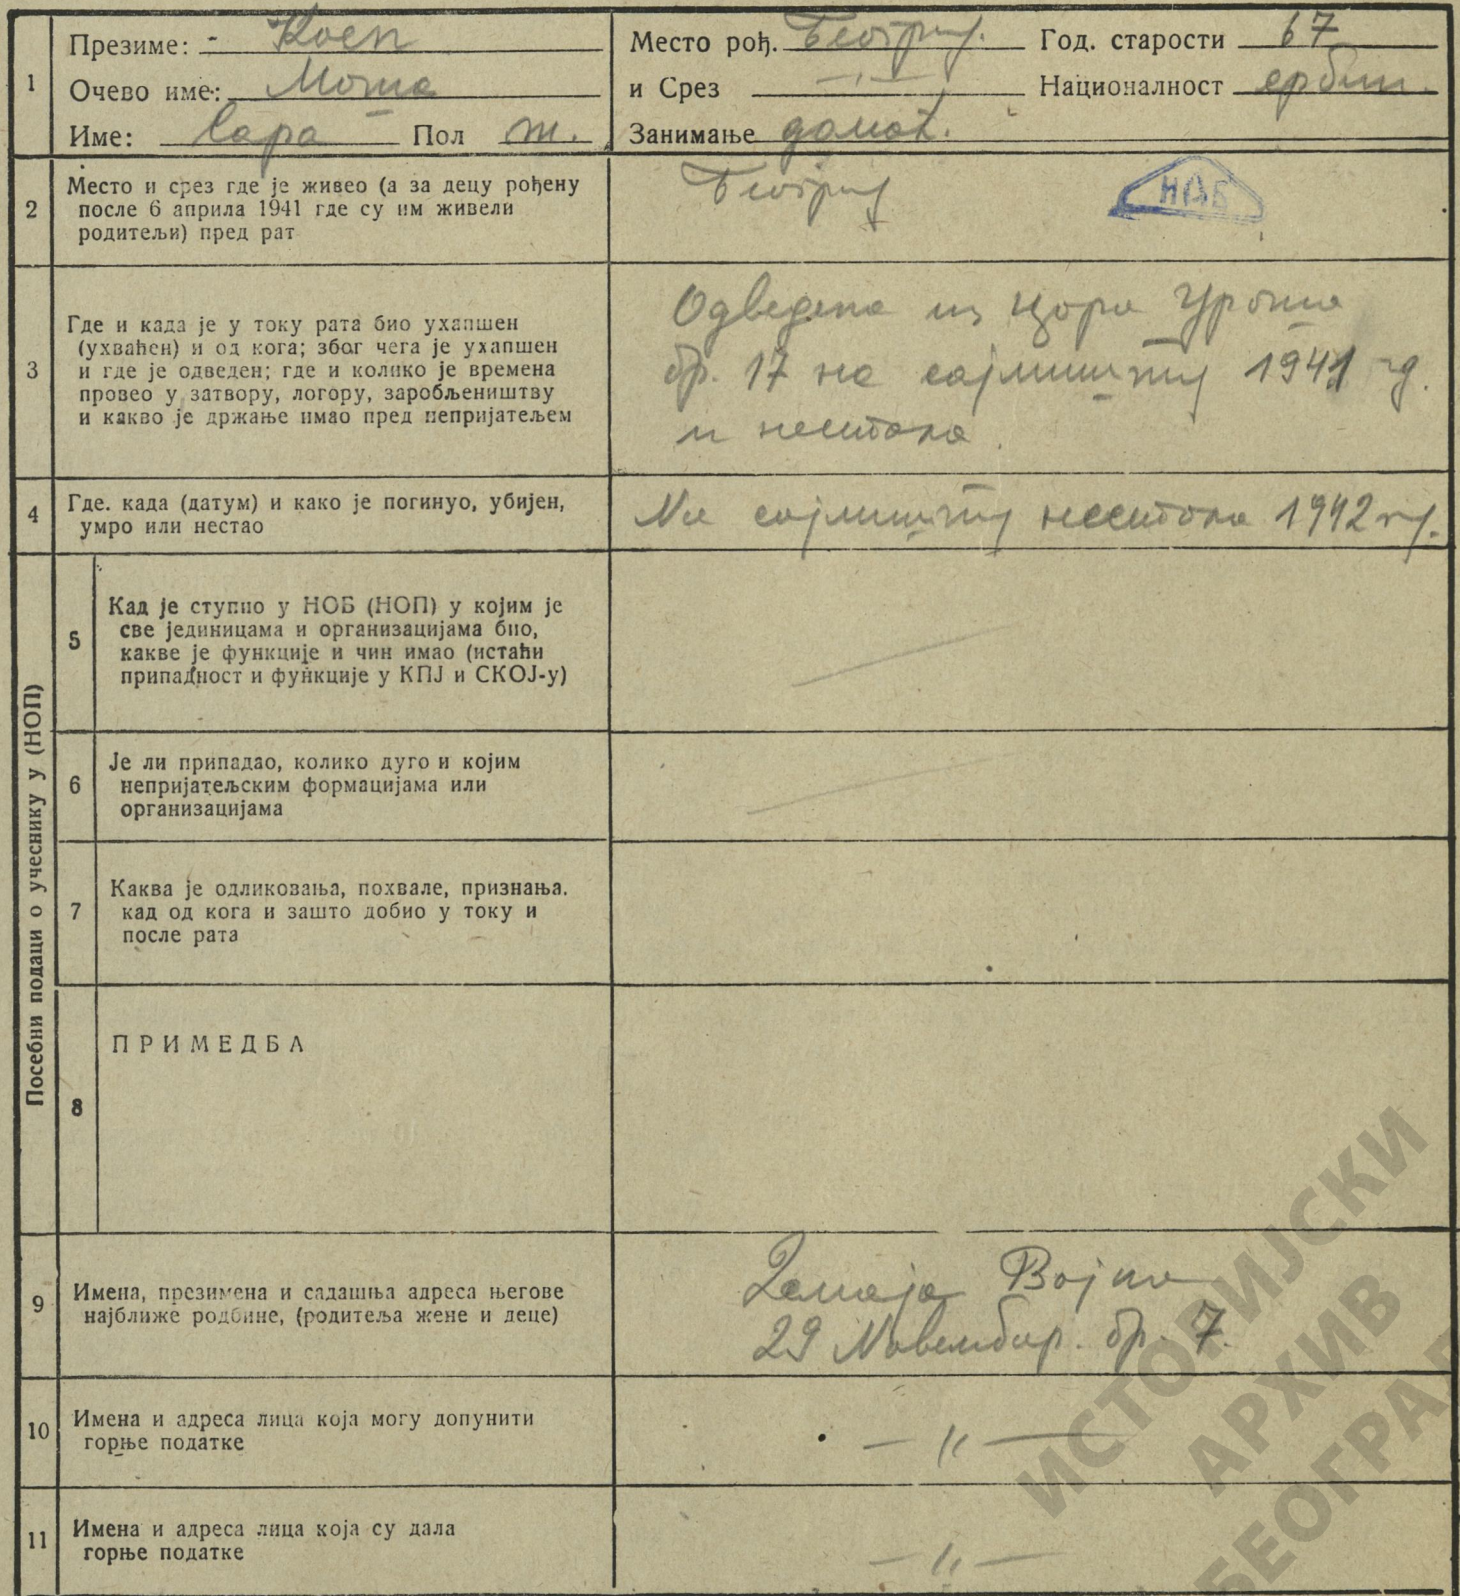 1
Презиме: - Коен
Очево име: Моша
Име: Сара Пол ж.
Место рођ. Београд. Год. старости 67
и Срез —〃— Националност
Занимање домаћ.
2
Место и срез где је живео (а за децу рођену
после 6 априла 1941 где су им живели
родитељи) пред рат
Београд
НАБ
3
Где и када је у току рата био ухапшен
(ухваћен) и од кога; због чега је ухапшен
и где је одведен; где и колико је времена
провео у затвору, логору, заробљеништву
и какво је држање имао пред непријатељем
Одведена из Цара Уроша
бр. 17 на сајмишту 1941 гд.
и нестала.
4
Где. када (датум) и како је погинуо, убијен,
умро или нестао
На сајмишту нестала 1942 г.
Посебни подаци о учеснику у (НОП)
5
Кад је ступио у НОБ (НОП) у којим је
све јединицама и организацијама био,
какве је функције и чин имао (истаћи
припадност и функције у КПЈ и СКОЈ-у)
6
Је ли припадао, колико дуго и којим
непријатељским формацијама или
организацијама
7
Каква је одликовања, похвале, признања.
кад од кога и зашто добио у току и
после рата
8
ПРИМЕДБА
9
Имена, презимена и садашња адреса његове
најближе родбине, (родитеља жене и деце)
29 Новембар. бр. 7.
10
Имена и адреса лица која могу допунити
горње податке
—〃—
11
Имена и адреса лица која су дала
горње податке
—〃—
ИСТОРИЈСКИ
АРХИВ
БЕОГРАД